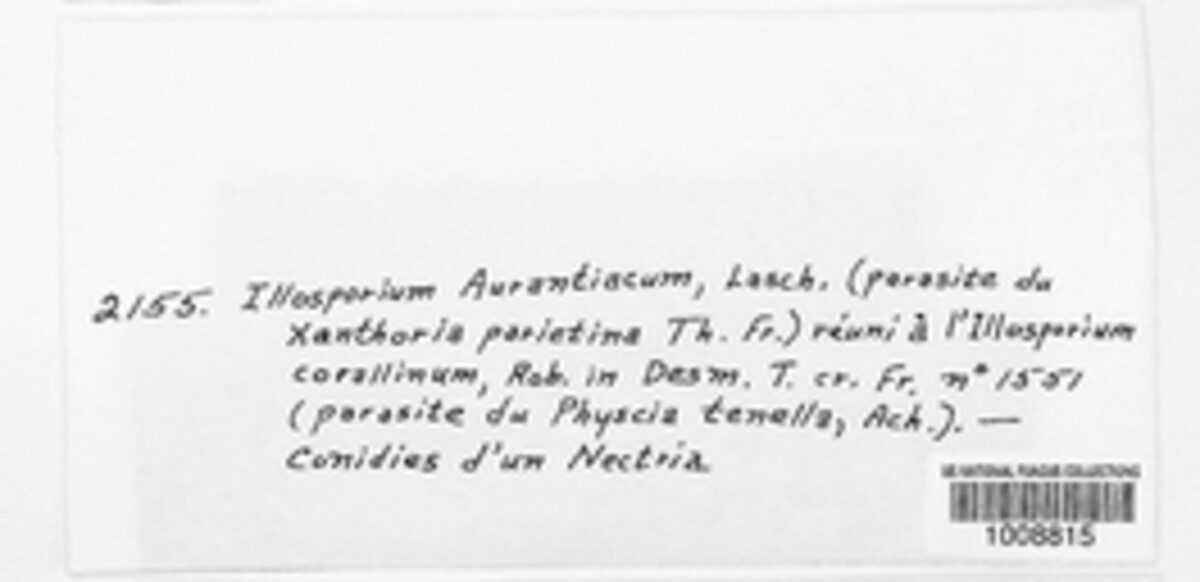 2155. Illosporium Aurantiacum, Lasch. (parasite du
Xanthoria parietina Th. Fr.) réuni à l'Illosporium
corallinum, Rob. in Desm. T. cr. Fr. n° 1551
(parasite du Physcia tenella, Ach.). —
Conidies d'un Nectria.
US NATIONAL FUNGUS COLLECTIONS
1008815